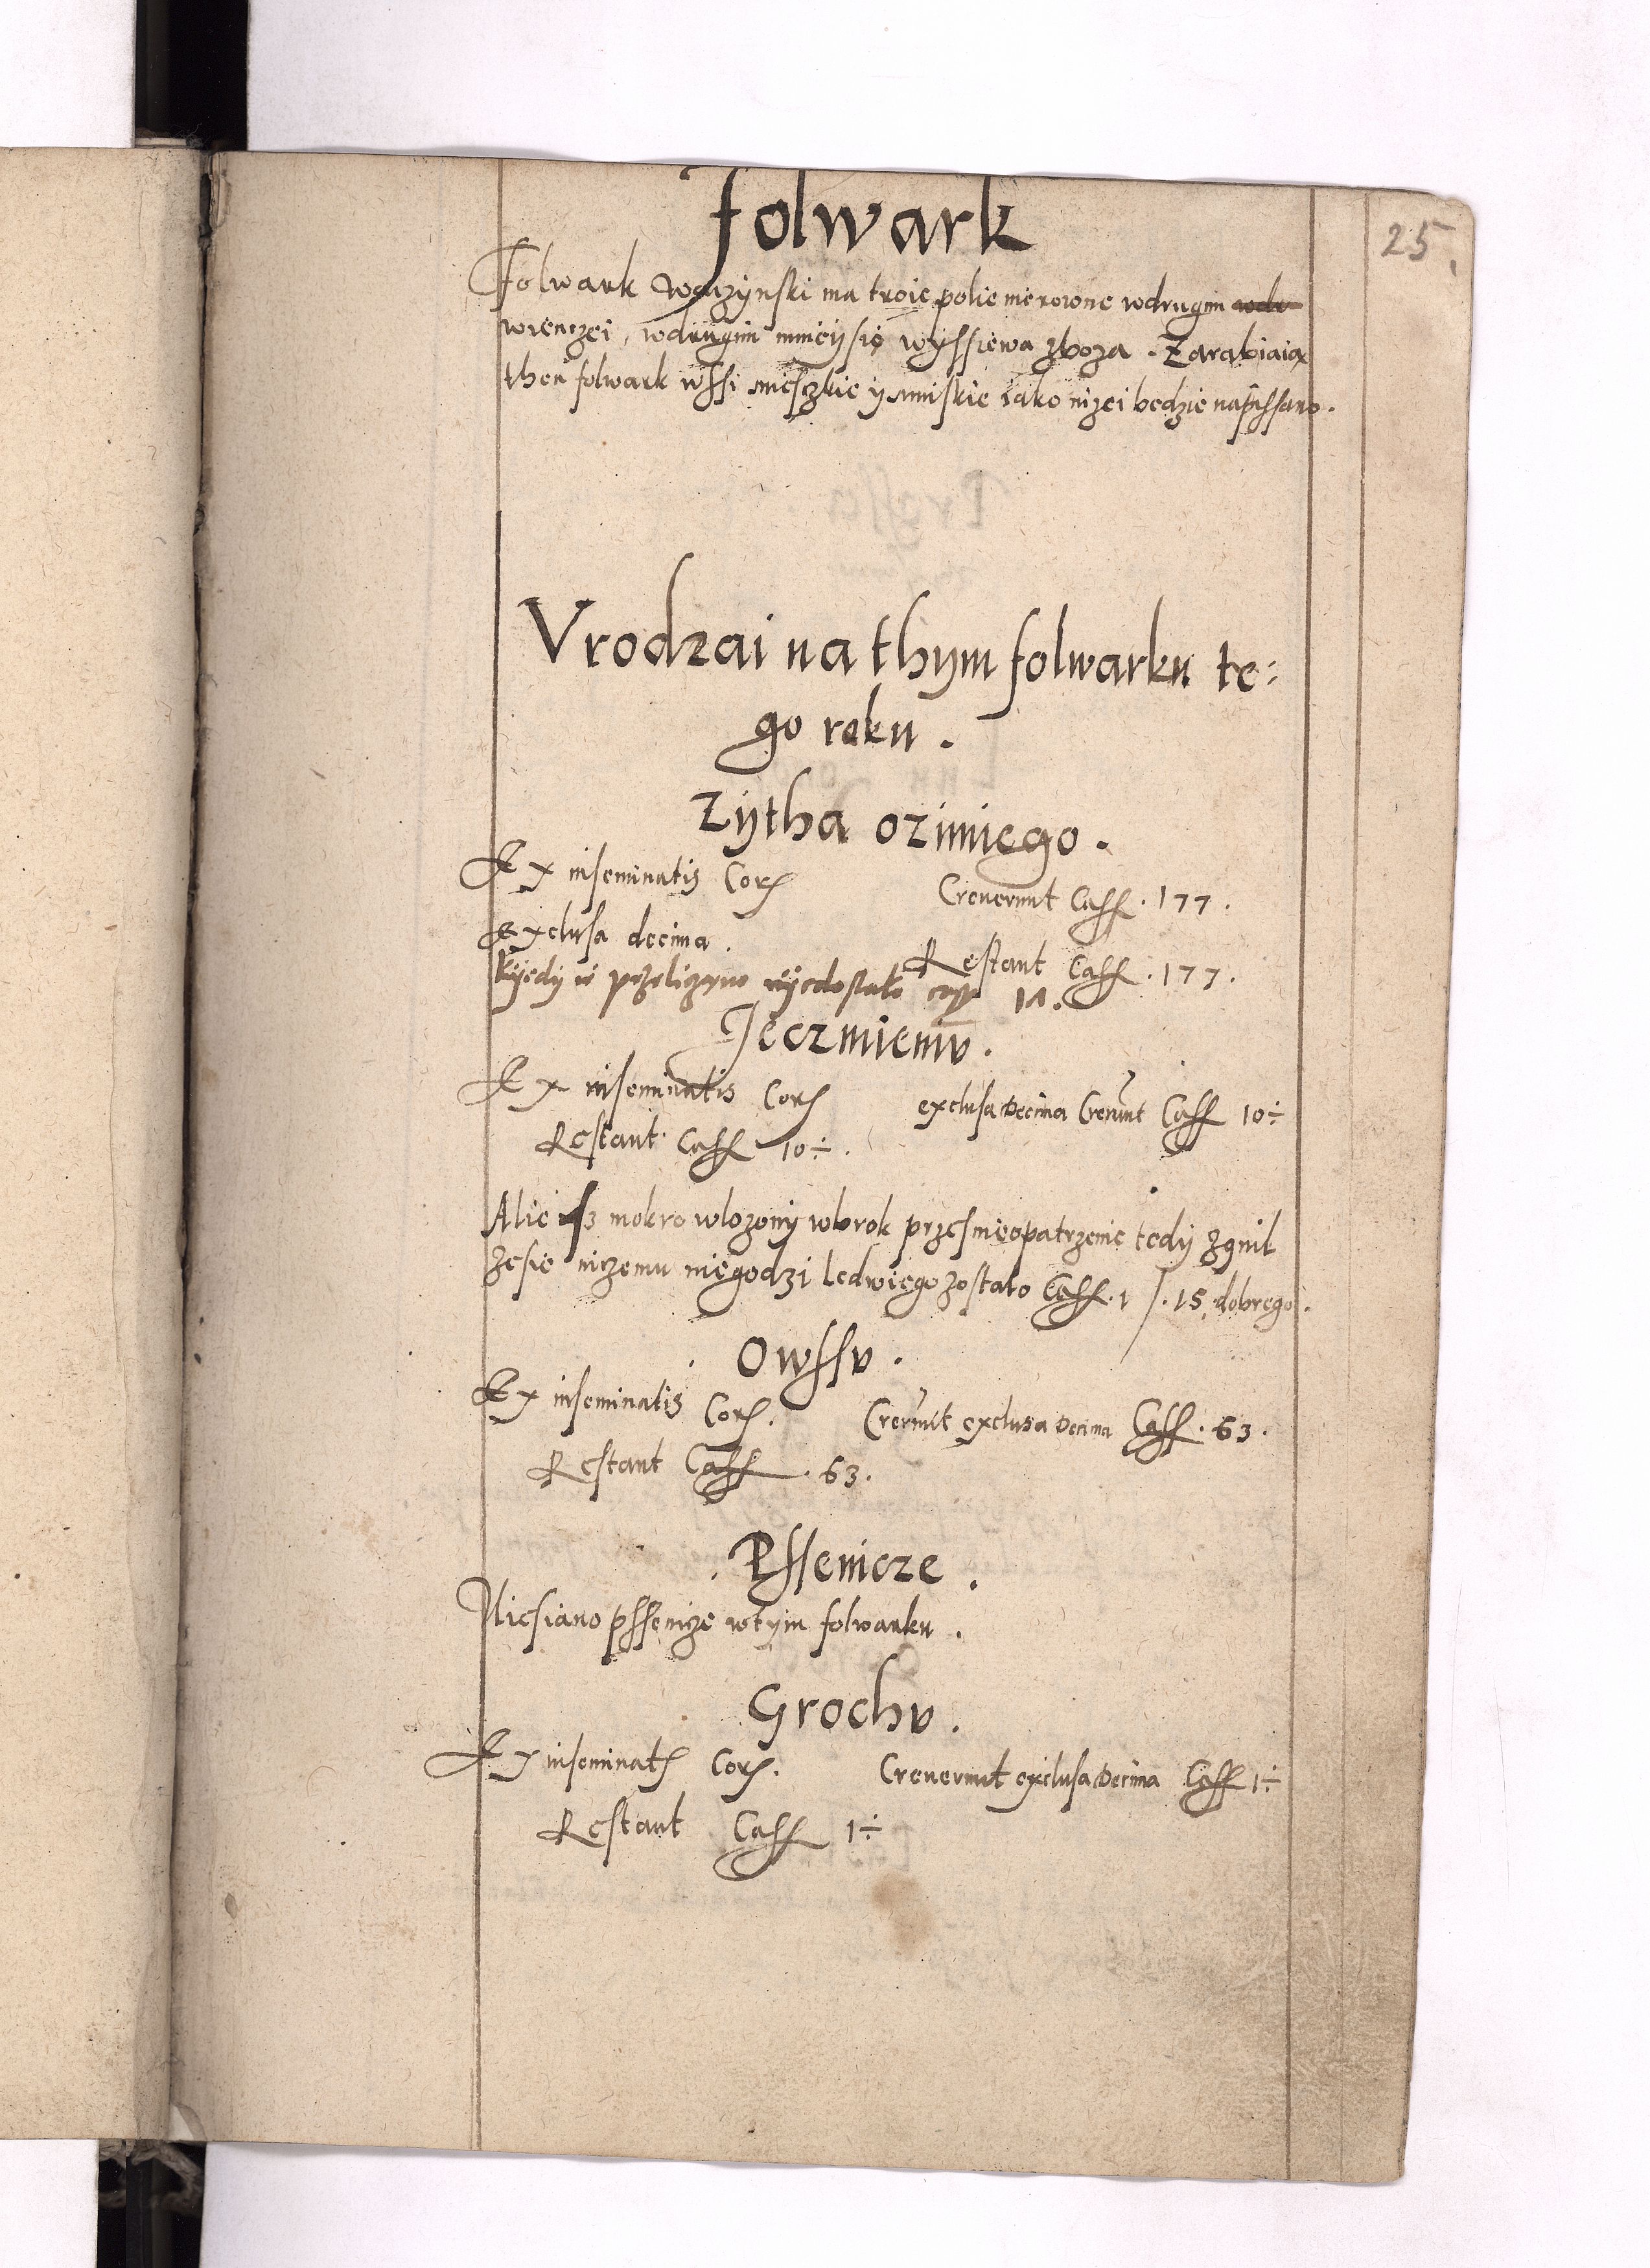 folwark
25.
Folwark ma troie polie nierowne wdrugim
wienczei, wdrugim mnieysię wyssiewa zboza. Zarabiaia
then folwark wssi miesczkie y iako nizei bedzie napissano.
Vrodzai na thym folwarku te:
go roku.
Zytha ozimiego.
Ex inseminatis Cor Creuerunt Cass. 177.
exclusa decima.
Restant Cass. 177.
Kyedy przeliczano nyedostało cap
Jeczmieniu.
Ex inseminatis Cor exclusa Decima Creuunt Cass 10÷
Restant Cass 10÷.
Alie mokro wlozony wbrok przes nieopatrzenie tedy zgnil
zesie niczemu niegodzi ledwiego zostalo Cass. 1 /. 15 dobrego.
Owssv.
Ex inseminatis Cor. Creuunt exclusa Decima Cass. 63.
Restant Cass. 63.
Pssenicze.
Niesiano pssenize wtym folwarku.
Grochv.
Ex inseminat Cor. Creuerunt exclusa Decima Cass 1÷
Restant Cass 1÷